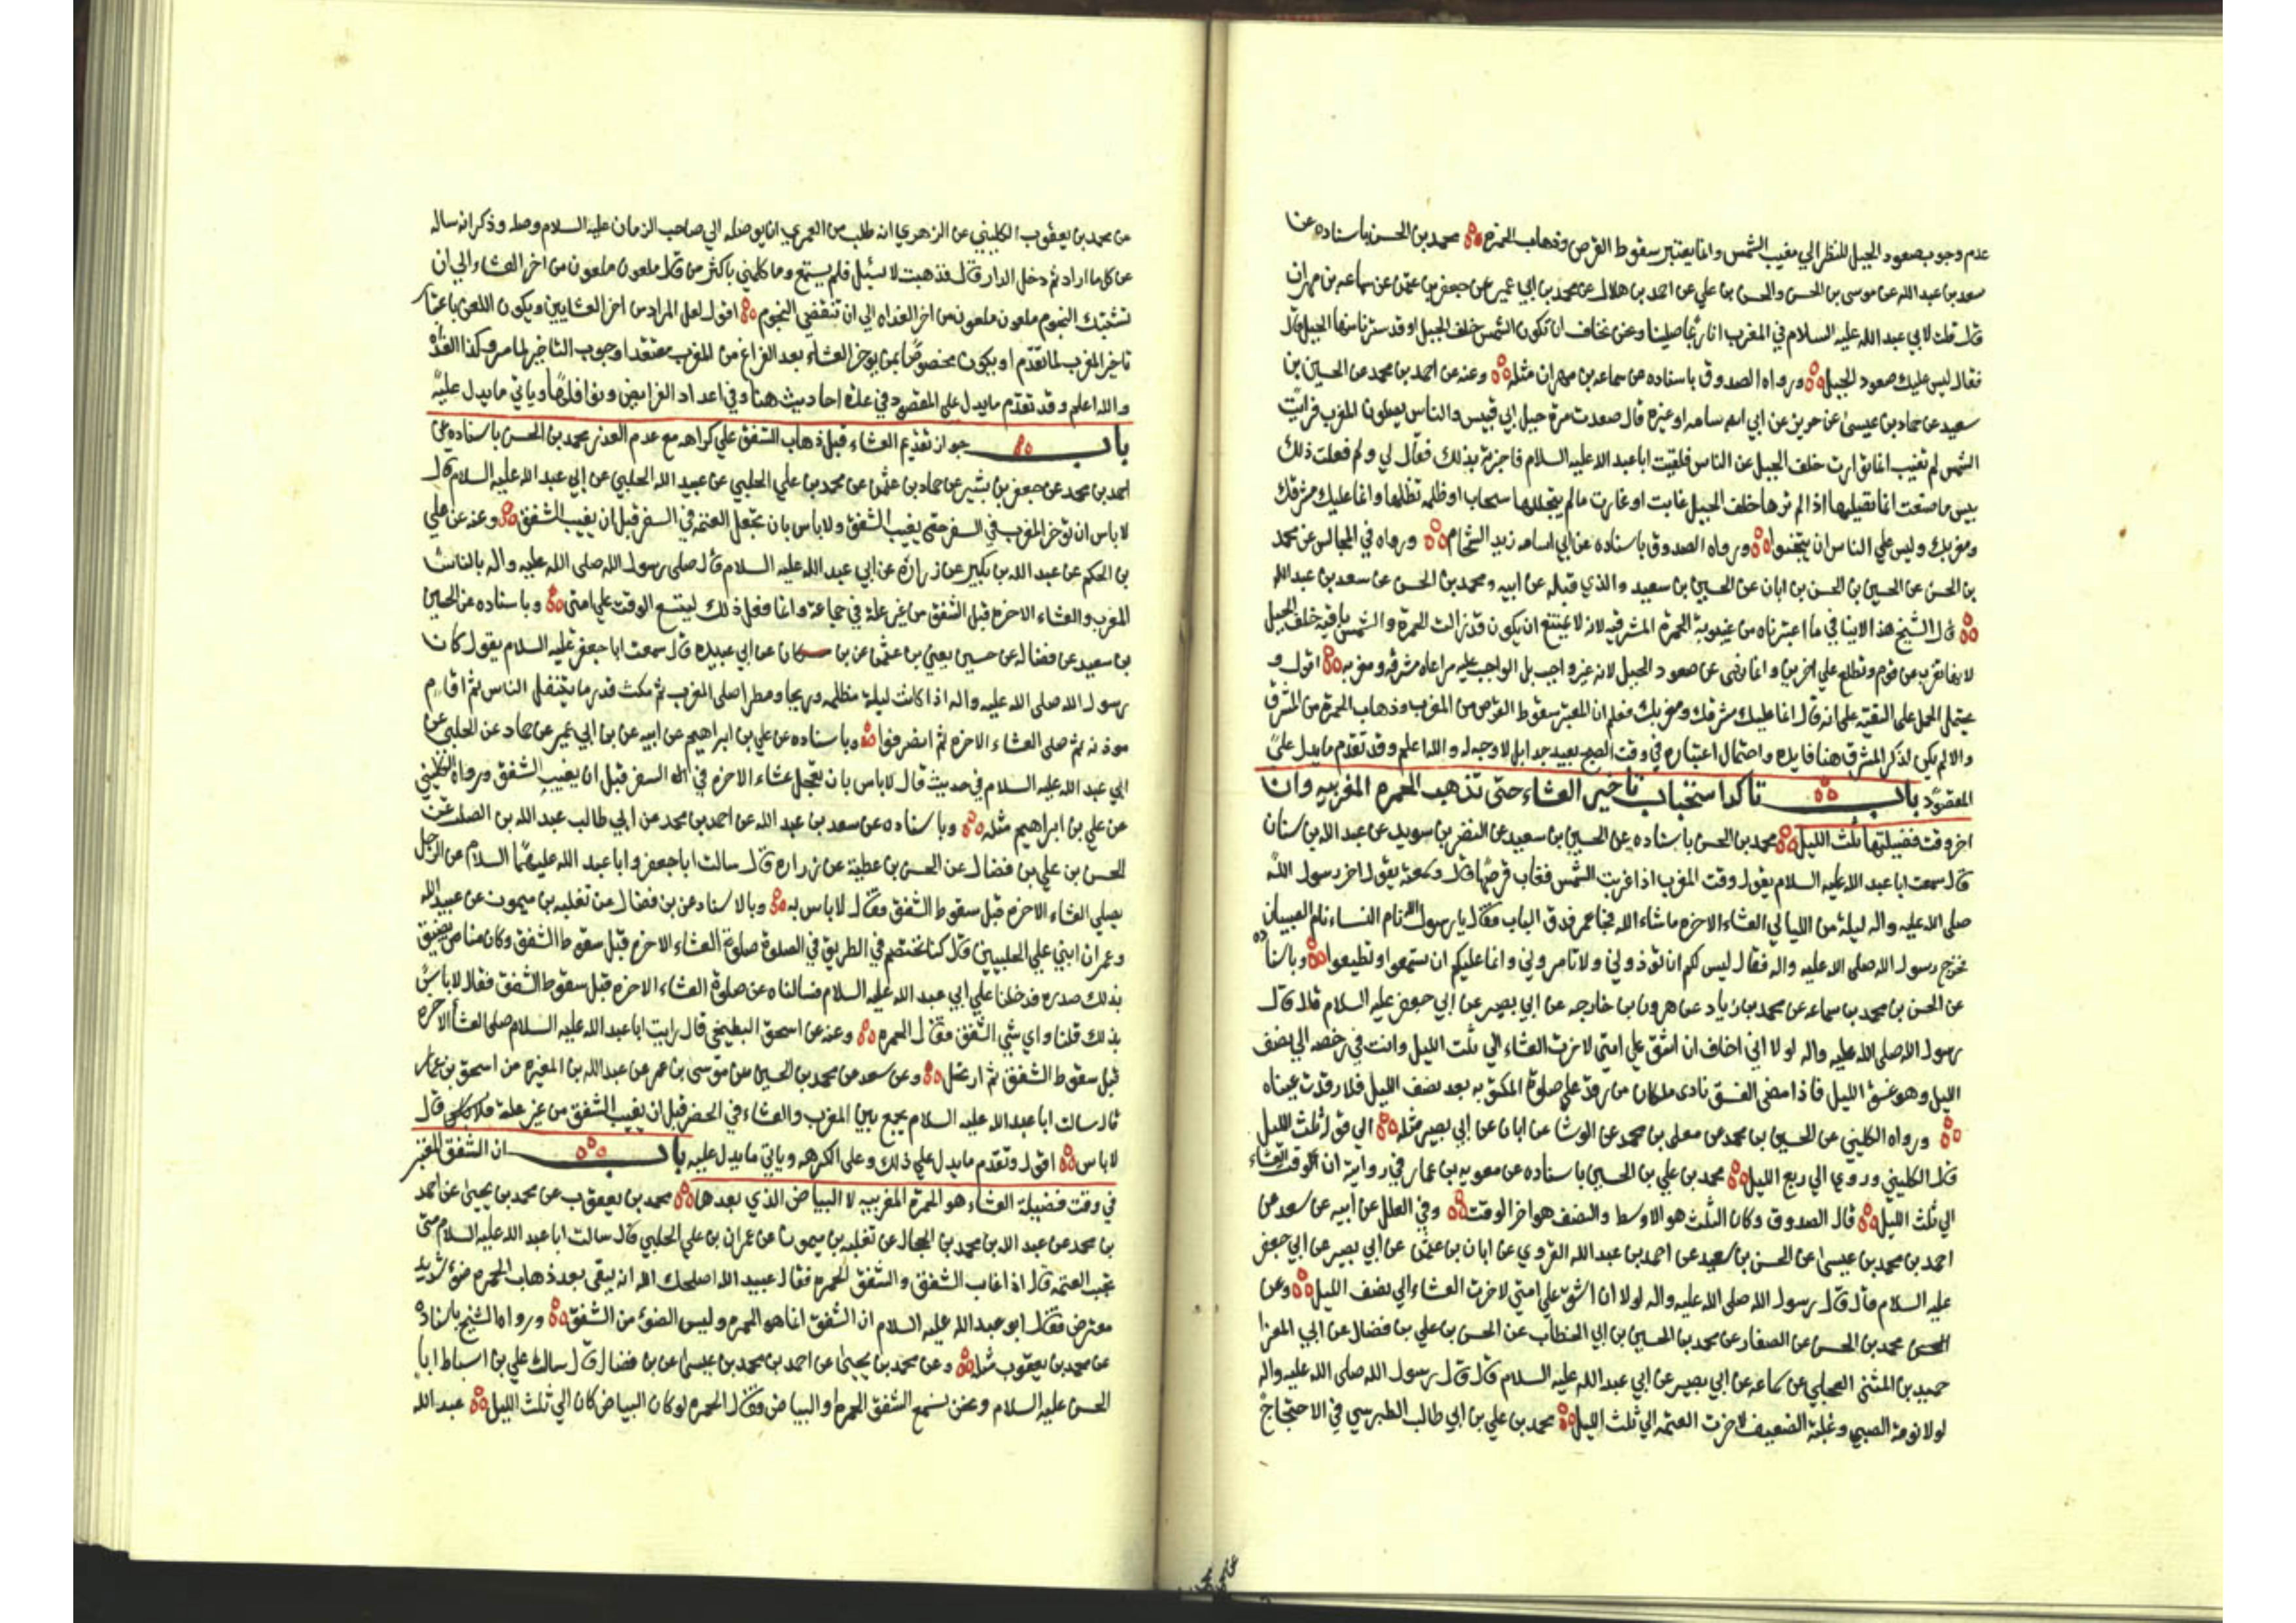 عدم وجوب صعود الجبل للنظر الي مغيب الشمس وانما يعتبر سقوط القرص وذهاب الحمرة محمد بن الحسن باسناده عن
سعد بن عبد الله عن موسى بن الحسن والحسن بن علي عن احمد بن هلال عن محمد بن ابي عمير عن جعفر بن عثمن عن سماعه بن مهران
قال قلت لابي عبد الله عليه السلام في المغرب انا ربما صلينا ونحن نخاف ان تكون الشمس خلف الجبل او قد سترنا منها الجبل قال
فقال ليس عليك صعود الجبل ورواه الصدوق باسناده عن سماعه بن مهران مثله وعنه عن احمد بن محمد عن الحسين بن
سعيد عن حماد بن عيسى عن حريز عن ابي اسامه او غيره قال صعدت مرة جبل ابي قبيس والناس يصلون المغرب فرايت
الشمس لم تغيب انما توارت خلف الجبل عن الناس فلقيت ابا عبد الله عليه السلام فاخبرته بذلك فقال لي ولم فعلت ذلك
بيس ما صنعت انما تصليها اذا لم ترها خلف الجبل غابت او غارت ما لم يتجللها سحاب او ظلمه تظلها وانما عليك مشرقك
ومغربك وليس علي الناس ان يبحثوا ورواه الصدوق باسناده عن ابي اسامه زيد الشحام ورواه في المجالس عن محمد
بن الحسن عن الحسين بن الحسن بن ابان عن الحسين بن سعيد والذي قبله عن ابيه ومحمد بن الحسن عن سعد بن عبد الله
قال الشيخ هذا لا ينافي ما اعتبرناه من غيبوبة الحمرة المشرقيه لانه لا يمتنع ان يكون قد زالت الحمرة والشمس باقيه خلف الجبل
لانها تغرب عن قوم وتطلع علي اخرين وانما نهى عن صعود الجبل لانه غير واجب بل الواجب عليه مراعاه مشرقه ومغربه اقول و
يحتمل الحمل على التقيه على انه قال انما عليك مشرقك ومغربك فعلم ان المعتبر سقوط القرص من المغرب وذهاب الحمرة من المشرق
والا لم يكن لذكر المشرق هنا فايده واحتمال اعتباره في وقت الصبح بعيد جدا بل لا وجه له والله اعلم وقد تقدم ما يدل على
المقصود باب تاكد استحباب تاخير العشاء حتى تذهب الحمره المغربيه وان
اخر وقت فضيلتها ثلث الليل محمد بن الحسن باسناده عن الحسين بن سعيد عن النضر بن سويد عن عبد الله بن سنان
قال سمعت ابا عبد الله عليه السلام يقول وقت المغرب اذا غربت الشمس فغاب قرصها قال وسمعته يقول اخر رسول الله
صلى الله عليه واله ليلة من الليالي العشاء الاخره ماشاء الله فجاء عمر فدق الباب فقال يا رسول الله نام النساء نام الصبيان
فخرج رسول الله صلى الله عليه واله فقال ليس لكم ان تؤذوني ولا تامروني وانما عليكم ان تسمعوا وتطيعوا وباسناده
عن الحسن بن محمد بن سماعه عن محمد بن زياد عن هرون بن خارجه عن ابي بصير عن ابي جعفر عليه السلام قال قال
رسول الله صلى الله عليه واله لولا اني اخاف ان اشق علي امتي لاخرت العشاء الي ثلث الليل وانت في رخصه الي نصف
الليل وهو غسق الليل فاذا مضى الغسق نادى ملكان من رقد عن صلوة المكتوبه بعد نصف الليل فلا رقدت عيناه
ورواه الكليني عن الحسين بن محمد عن معلى بن محمد عن الوشا عن ابان عن ابي بصير مثله الي قوله ثلث الليل
قال الكليني وروي الي ربع الليل محمد بن علي بن الحسين باسناده عن معويه بن عمار في رواية ان وقت العشاء
الي ثلث الليل قال الصدوق وكان الثلث هو الاوسط والنصف هو اخر الوقت وفي العلل عن ابيه عن سعد عن
احمد بن محمد بن عيسى عن الحسن بن سعيد عن احمد بن عبد الله القروي عن ابان بن عثمن عن ابي بصير عن ابي جعفر
عليه السلام قال قال رسول الله صلى الله عليه واله لولا ان اشق علي امتي لاخرت العشاء الي نصف الليل وعن
محمد بن الحسن عن الصفار عن محمد بن الحسين بن ابي الخطاب عن الحسن بن علي بن فضال عن ابي المغرا
حميد بن المثنى العجلي عن سماعه عن ابي بصير عن ابي عبد الله عليه السلام قال قال رسول الله صلى الله عليه واله
لولا نومة الصبي وغلبة الضعيف لاخرت العتمه الي ثلث الليل محمد بن علي بن ابي طالب الطبرسي في الاحتجاج
عن محمد بن يعقوب الكليني عن الزهري انه طلب من العمري ان يوصله الي صاحب الزمان عليه السلام وصله وذكر انه ساله
عن كل ما اراد ثم دخل الدار قال فذهبت لاسئل فلم يستمع وما كلمني باكثر من قال ملعون ملعون من اخر العشاء الي ان
تشتبك النجوم ملعون ملعون من اخر الغداه الي ان تنقضي النجوم اقول لعل المراد من اخر العشايين ويكون اللعن باعتبار
تاخير المغرب لما تقدم او يكون مخصوصا بمن يوخر العشاء بعد الفراغ من المغرب معتقدا وجوب التاخير لما مر وكذا الغداة
والله اعلم وقد تقدم ما يدل علي المقصود في عدة احاديث هنا وفي اعداد الفرايض ونوافلها وياتي ما يدل عليه
باب جواز تقديم العشاء قبل ذهاب الشفق علي كراهه مع عدم العذر محمد بن الحسن باسناده عن
احمد بن محمد عن جعفر بن بشير عن حماد بن عثمن عن محمد بن علي الحلبي عن عبيد الله الحلبي عن ابي عبد الله عليه السلام قال
لا باس ان تؤخر المغرب في السفر حتى يغيب الشفق ولا باس بان تعجل العتمه في السفر قبل ان يغيب الشفق وعنه عن علي
بن الحكم عن عبد الله بن بكير عن زراره عن ابي عبد الله عليه السلام قال صلى رسول الله صلى الله عليه واله بالناس
المغرب والعشاء الاخره قبل الشفق من غير علة في جماعة وانما فعل ذلك ليتسع الوقت علي امتي وباسناده عن الحسين
بن سعيد عن فضاله عن حسين يعني بن عثمن عن بن مسكان عن ابي عبيده قال سمعت ابا جعفر عليه السلام يقول كان
رسول الله صلى الله عليه واله اذا كانت ليلة مظلمه وريحا ومطر اصلى المغرب ثم مكث قدر ما يتنفل الناس ثم اقام
موذنه ثم صلى العشاء الاخره ثم انصرفوا وباسناده عن علي بن ابراهيم عن ابيه عن بن ابي عمير عن حماد عن الحلبي عن
ابي عبد الله عليه السلام في حديث قال لا باس بان يعجل عشاء الاخره في السفر قبل ان يغيب الشفق ورواه الكليني
عن علي بن ابراهيم مثله وباسناده عن سعد بن عبد الله عن احمد بن محمد عن ابي طالب عبد الله بن الصلت عن
الحسن بن علي بن فضال عن الحسن بن عطية عن زراره قال سالت ابا جعفر وابا عبد الله عليهما السلام عن الرجل
يصلي العشاء الاخره قبل سقوط الشفق فقال لا باس به وبالاسناد عن بن فضال عن ثعلبه بن ميمون عن عبيد الله
وعمران ابني علي الحلبيين قال كنا نختصم في الطريق في الصلوة صلوة العشاء الاخره قبل سقوط الشفق وكان منا من يضيق
بذلك صدره فدخلنا علي ابي عبد الله عليه السلام فسالناه عن صلوة العشاء الاخره قبل سقوط الشفق فقال لا باس
بذلك قلنا واي شي الشفق فقال الحمره وعنه عن اسحق البطيخي قال رايت ابا عبد الله عليه السلام صلى العشاء الاخره
قبل سقوط الشفق ثم ارتحل وعن سعد عن محمد بن الحسين عن موسى بن عمر عن عبد الله بن المغيره عن اسحق بن عمار
قال سالت ابا عبد الله عليه السلام يجمع بين المغرب والعشاء في الحضر قبل ان يغيب الشفق من غير علة قال
لا باس اقول وتقدم ما يدل علي ذلك وعلى الكرهه وياتي ما يدل عليه باب ان الشفق المعتبر
في وقت فضيلة العشاء هو الحمرة المغربيه لا البياض الذي بعدها محمد بن يعقوب عن محمد بن يحيى عن احمد
بن محمد عن عبد الله بن محمد بن الحجال عن ثعلبه بن ميمون عن عمران بن علي الحلبي قال سالت ابا عبد الله عليه السلام متى
تجب العتمه قال اذا غاب الشفق والشفق الحمره فقال عبيد الله اصلحك الله انه يبقى بعد ذهاب الحمره ضوء شديد
معترض فقال ابو عبد الله عليه السلام ان الشفق انما هو الحمره وليس الضوء من الشفق ورواه الشيخ باسناده
عن محمد بن يعقوب مثله وعن محمد بن يحيى عن احمد بن محمد بن عيسى عن بن فضال قال سال علي بن اسباط ابا
الحسن عليه السلام ونحن نسمع الشفق الحمره او البياض فقال الحمره لو كان البياض كان الي ثلث الليل عبد الله